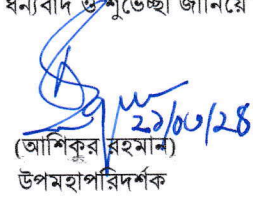 ধন্যবাদ ও শুভেচ্ছা জানিয়ে
(আশিকুর রহমান)
উপমহাপরিদর্শক